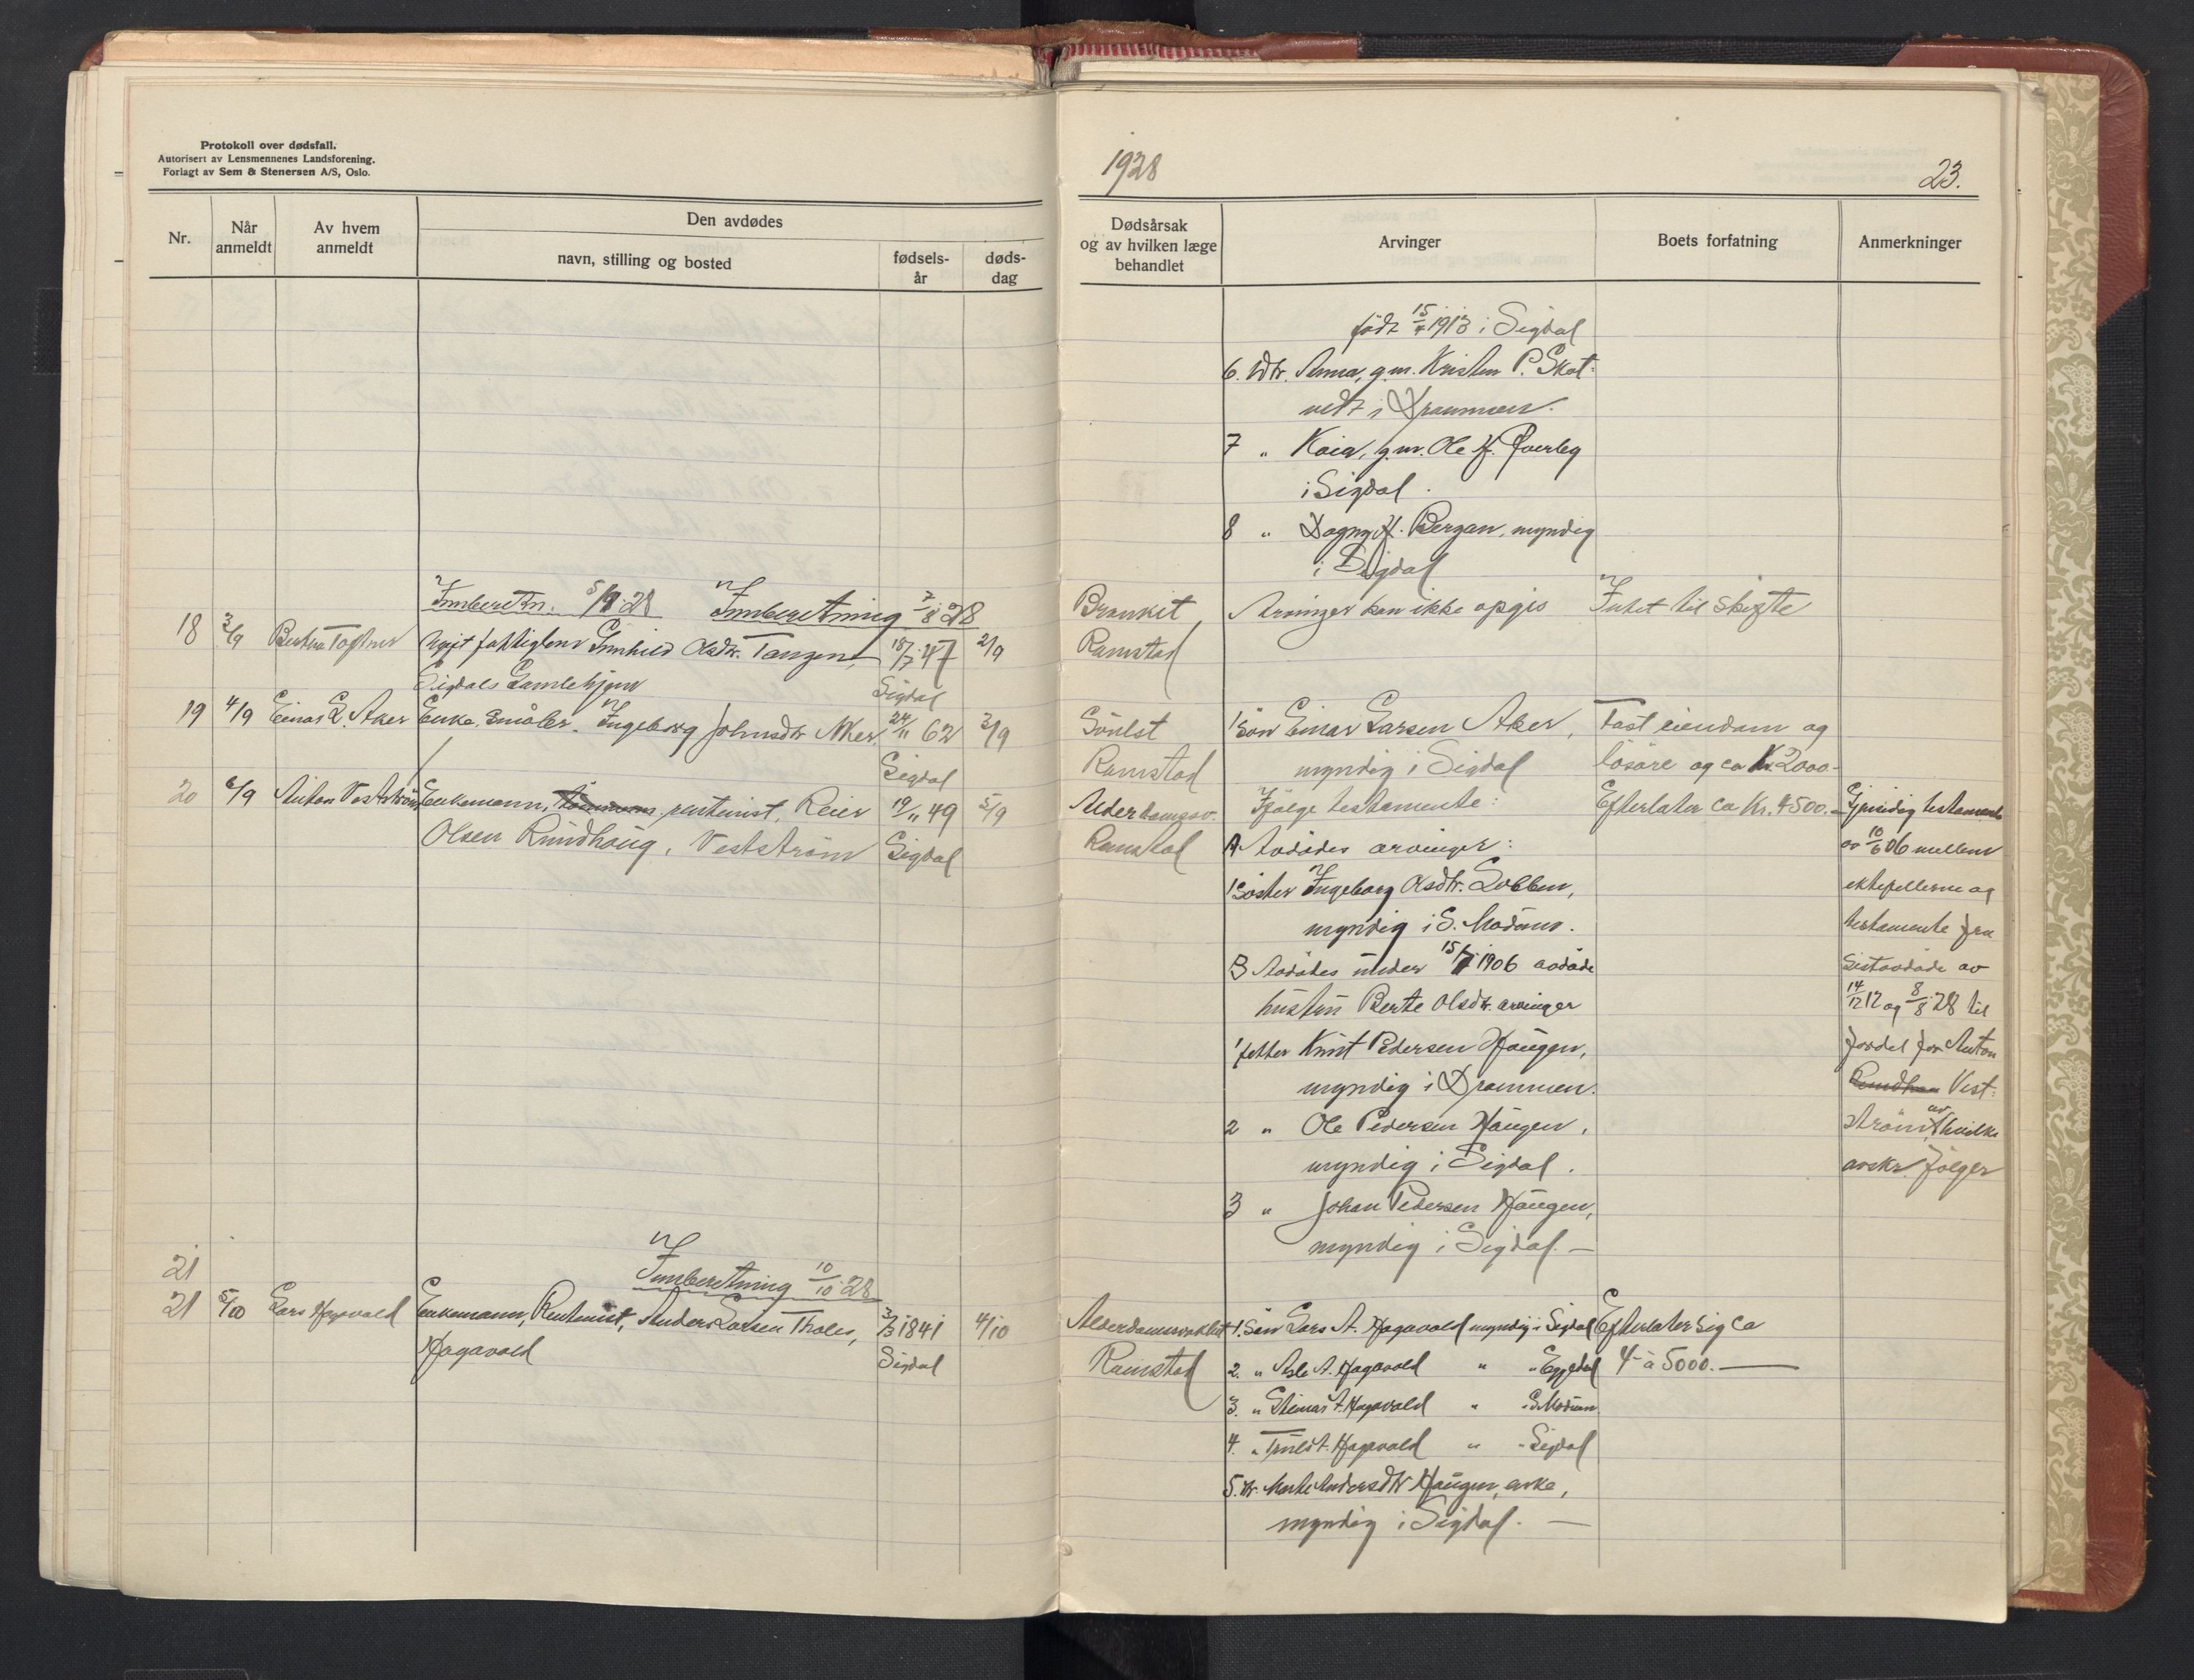 Protokoll over dødsfall.
Autorisert av Lensmennenes Landsforening.
Forlagt av Sem & Stenersen A/S, Oslo.
Nr.
Når anmeldt
Av hvem anmeldt
Den avdødes
navn, stilling og bosted
fødsels-år
døds-dag
Innberetn. 5/9 28 Innberetning 7/8 28
18 3/9 Ugift fattiglem Gunhild Olsdtr. Tangen, 18/7 47 2/9
Sigdals Gamlehjem Sigdal
19 4/9 Einar L. Aker Enke, småbr. Ingeborg Johnsdtr Aker. 24/11 62 3/9
Sigdal
20 6/9 Anton Vestström Enkemann, rentenist, Reier 19/11 49 5/9
Olsen Rundhaug, Vestström Sigdal
21
Innberetning 10/10 28
21 5/10 Lars Hagavold Enkemann, Rentenist, Anders Larsen Tholes, 3/3 1841 4/10
Hagavold Sigdal
1928
23.
Dødsårsak og av hvilken læge behandlet
Arvinger
Boets forfatning
Anmerkninger
født 15/4 1913 i Sigdal
6. Dtr. Anna, g.m. Kristen P. Skot-
vedt i Drammen.
7 " Kaia, g.m. Ole H.
i Sigdal.
8 " Dagny H. Bergan, myndig
i Sigdal
Bronkit, Arvinger kan ikke opgis Intet til skifte
Ramstad
1 Sön Einar Larsen Aker, Fast eiendom og
Ramstad myndig i Sigdal lösöre og ca Kr. 2000.-
Alderdomssv. Ifölge testamente: Efterlater ca Kr. 4500.- Gjensidig testamente
Ramstad A Avdödes arvinger: av 10/6 06 mellem
1 Söster Ingeborg Olsdtr. Lobben, ektefellerne og
myndig i S. Modum. testamente fra
B Avdödes under 15/7 1906 avdöde sistavdöde av
hustru Berte Olsdtr. arvinger 14/12 12 og 8/8 28 til
1 fetter Knut Pedersen Haugen, fordel for Anton
myndig i Drammen. Vest-
2 " Ole Pedersen Haugen, ström, av hvilke
myndig i Sigdal. avskr. fölger
3 " Johan Pedersen Haugen,
myndig i Sigdal. —
Alderdomssvakhet 1. Sön Lars A. Hagavold myndig i Sigdal Efterlater sig ca
Ramstad 2. " Asle A. Hagavold " " Eggedal 4- à 5000. —
3. " Steinar A. Hagavold " i S. Modum
4. " Truls A. Hagavold " " Sigdal
5. Dtr. Marte Andersdtr Haugen, enke,
myndig i Sigdal. —